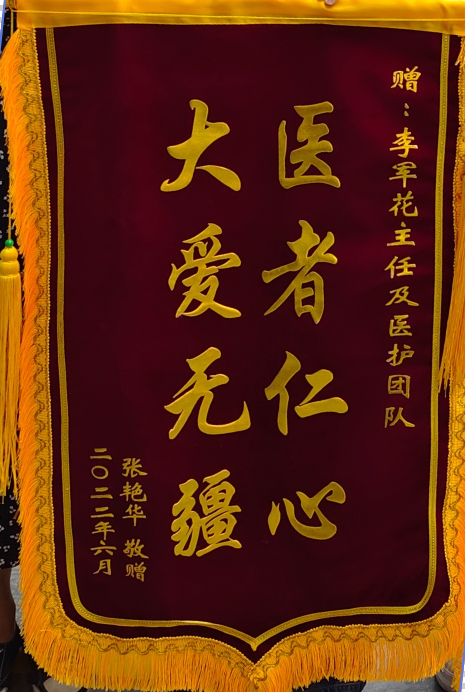 赠：李军花主任及医护团队
医者仁心
大爱无疆
张艳华 敬赠
二〇二二年六月